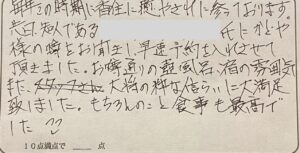 毎年この時期に宿住に癒やされに参っております。
先日、知人である 氏にかどや
様の噂をお聞きし、早速予約を入れさせて
頂きました。お噂通りの露天風呂、宿の雰囲気
また、大将の粋な計らいに大満足
致しました。もちろんのこと食事も最高で
した
10点満点で 点